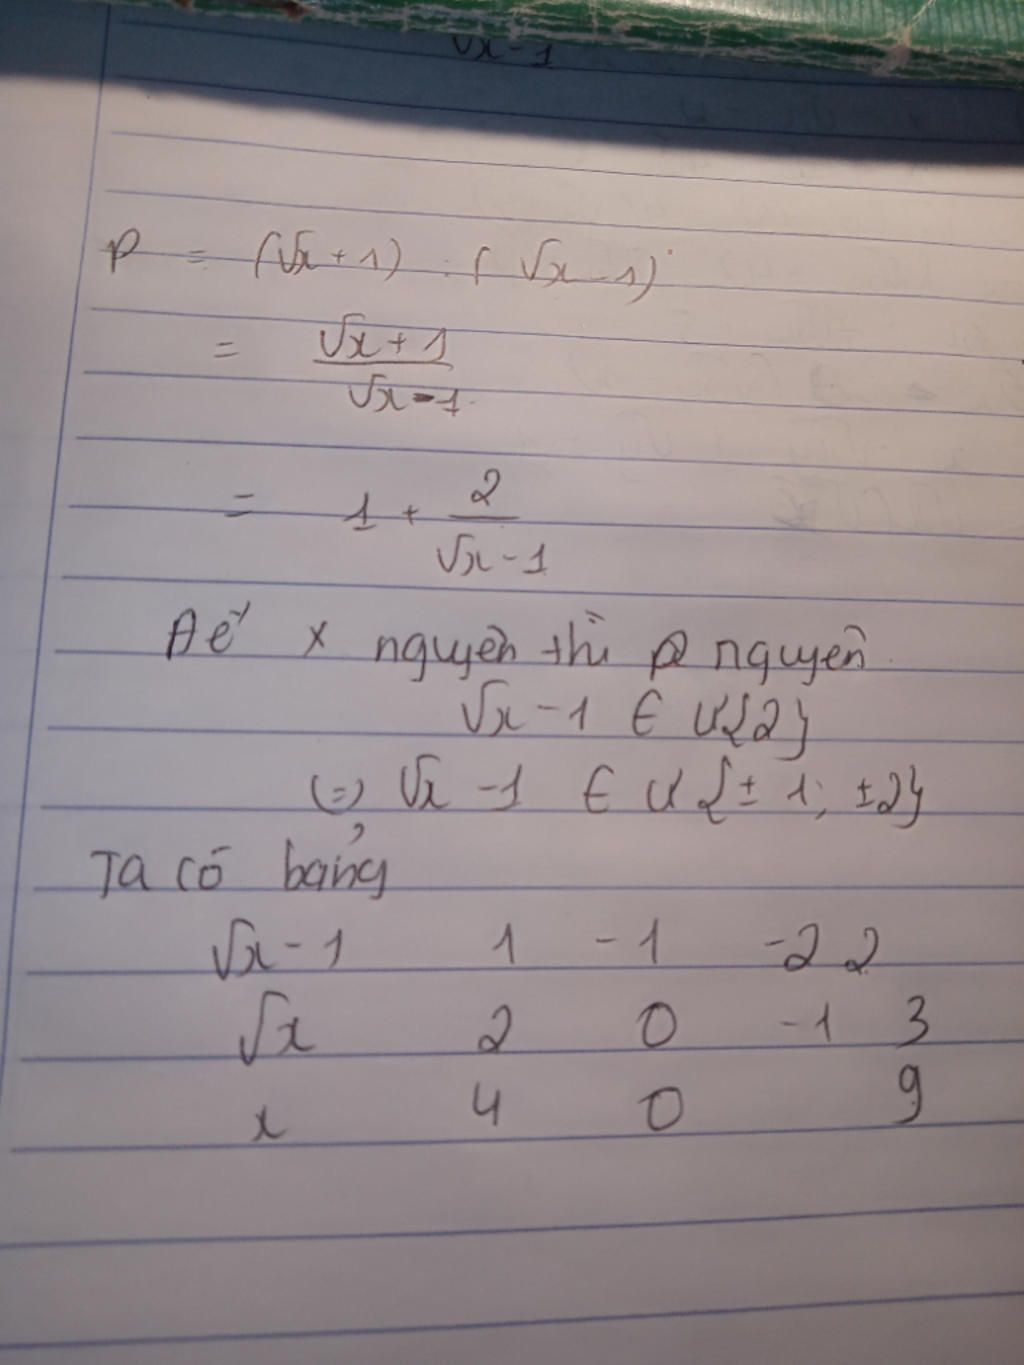 √x - 1
P = (√x + 1) : (√x - 1)
= √x + 1
√x - 1
= 1 + 2
√x - 1
x nguyên thì P nguyên
√x - 1 ∈ Ư{2}
(=) √x - 1 ∈ Ư{± 1; ±2}
Ta có bảng
√x - 1 1 -1 -2 2
√x 2 0 -1 3
x 4 0 9